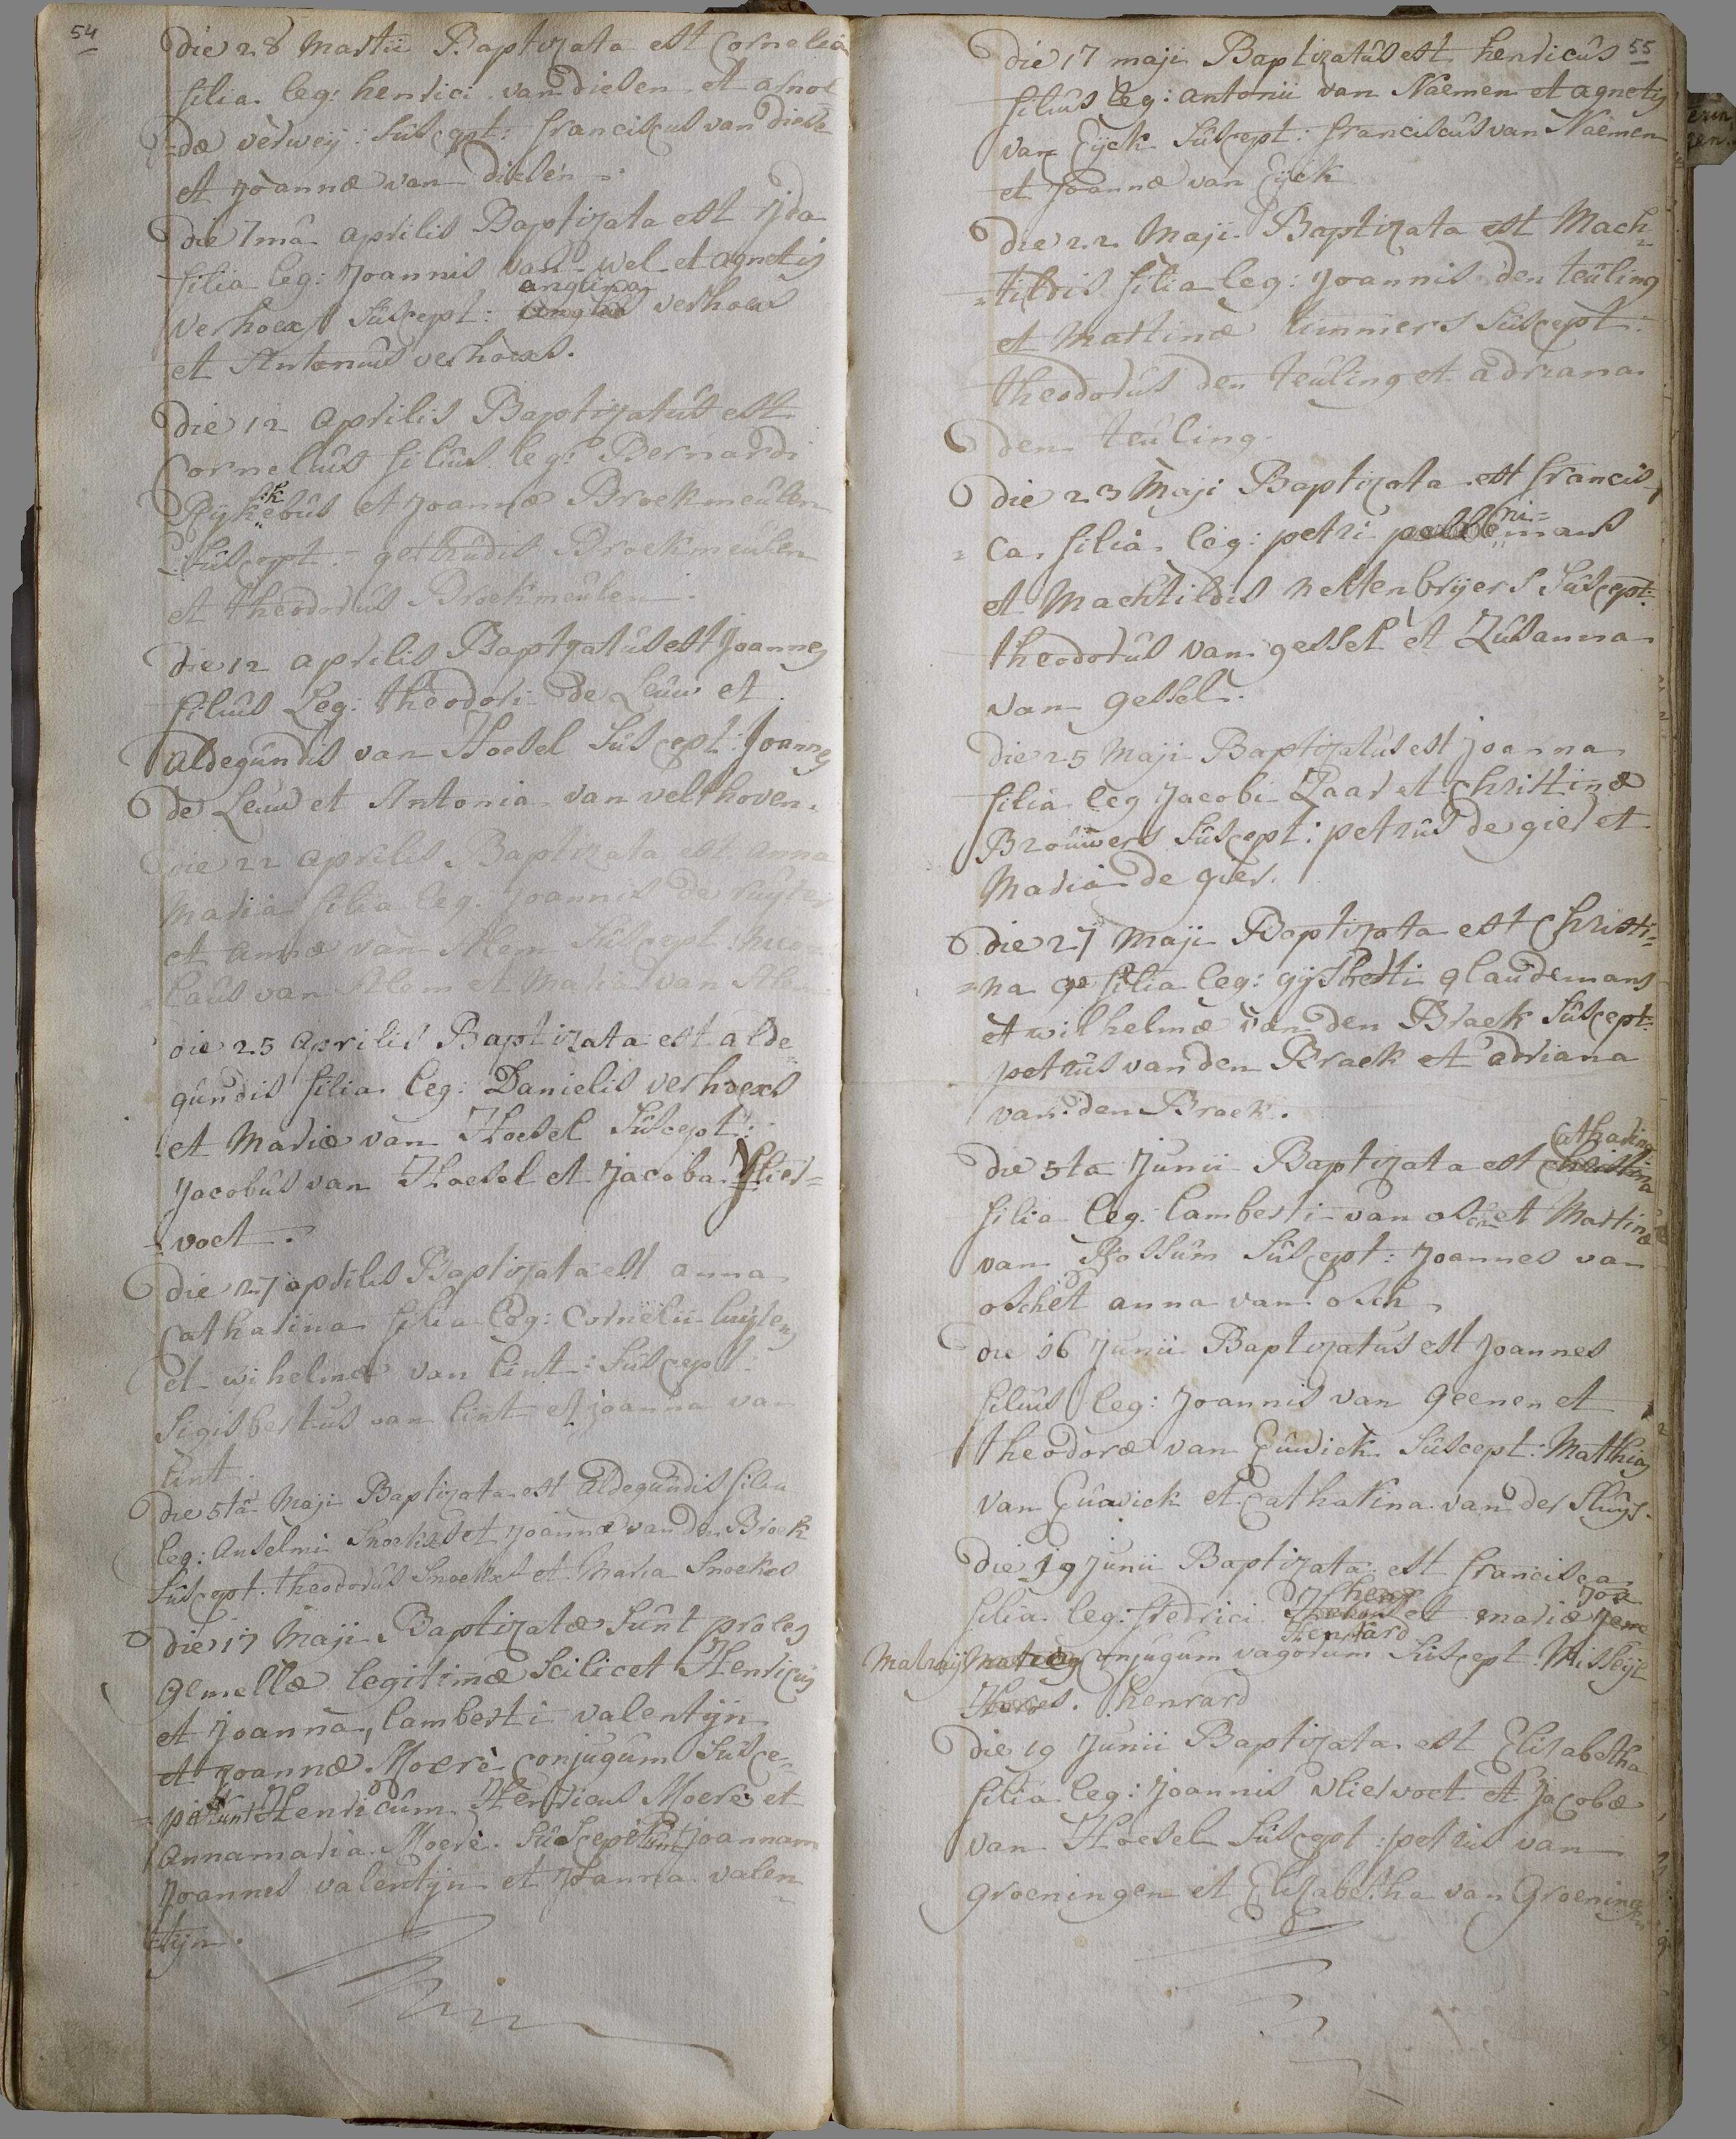 54
Die 28 Martii Baptizata est Cornelia
filia leg: henrici van diesen et arnol
=dæ verweij: Suscept: franciscus van diese
et Joannæ van diesen.
Die 1mâ aprilis Baptizata est Ida
filia leg: Joannis van wel et agnetis
angtina
verhoexs Suscept: verhoexs
et Antonius verhoexs.
Die 12 Aprilis Baptizatus est
Cornelius filius leg: Bernardi
Rijkebùs et Joannæ Broekmeulen
Suscept: getrudis Broekmeulen
et theodorus Broekmeulen.
Die 12 aprilis Baptizatus est Joannes
filius Leg: theodori de Leuw et
Aldegundis van Hoesel Suscept: Joannes
de Leuw et Antonia van velthoven.
Die 22 Aprilis Baptizata est Anna
Maria filia leg. Joannis de ruijter
et Annæ van Alem Suscept: Nico
=laus van Alem et Maria van Alem.
die 25 Aprilis Baptizata est alde=
gundis filia leg: Danielis verhoexs
et Mariæ van Hoesel Suscept:
Jacobus van Hoesel et Jacoba Vlier=
=voet.
Die 27 aprilis Baptizata est anna
Catharina filia leg: Cornelii luijten
et wihelmæ van lint: Suscept:
Sigisbertus van lint et joanna van
lint.
Die 5tâ Maji Baptizata est Aldegundis filia
leg: Anselmi Snoekxs et Joannæ van den Broek
Suscept: theodorus Snoekxs et Maria Snoekxs
Die 17 Maji Baptizatæ Sunt proles
gemellæ legitimæ Scilicet Henricus
et Joanna, lamberti valentijn
et Joannæ Moerè conjugum Susce=
=perunt Henricum Henricus Moerè et
Annamaria Moerè. Susceperunt joannam
Joannes valentijn et Joanna valen
=tijn.
55
Die 17 maji Baptizatus est henricus
filius leg: antonii van Naemen et agnetis
van Eijck Suscept: franciscus van Naemen
et Joannæ van Eijck
Die 22 Maji Baptizata est Mach=
=tildis filia leg: Joannis den teuling
et Martinæ timmers Suscept:
theodorus den teuling et adriana
den teuling.
Die 23 Maji Baptizata est francis
=ca filia leg: petri
et Machtildis nettenbrijers Suscept:
theodorus van gessel et Zusanna
van gessel.
Die 25 Maji Baptizatus est Joanna
filia leg Jacobi Zaar et Christinæ
Brouwers Suscept: petrus de gier et
Maria de gier.
Die 27 Maji Baptizata est Christi=
=na filia leg: gijsberti glaudemans
et wilhelmæ van den Braek Suscept:
petrus van den Braek et adriana
van den Braek.
Catharina
Die 5ta Junii Baptizata est Christina
filia leg: lamberti van osch et Martinæ
van Rossum Suscept: Joannes van
osch et anna van osch
Die 16 Junii Baptizatus est Joannes
filius leg: Joannis van Geenen et
theodoræ van Euwick Suscept: Matthias
van Euwick et Catharina van der Sluijs.
Die 19 Junii Baptizata est francisca
filia leg: fredrici et mariæ
conjugum vagorum Suscept:
henrard
Die 19 Junii Baptizata est Elisabetha
filia leg: Joannis vliervoet et Jacobæ
van Hoesel Suscept: petrus van
Groeningen et Elisabetha van Groeningen